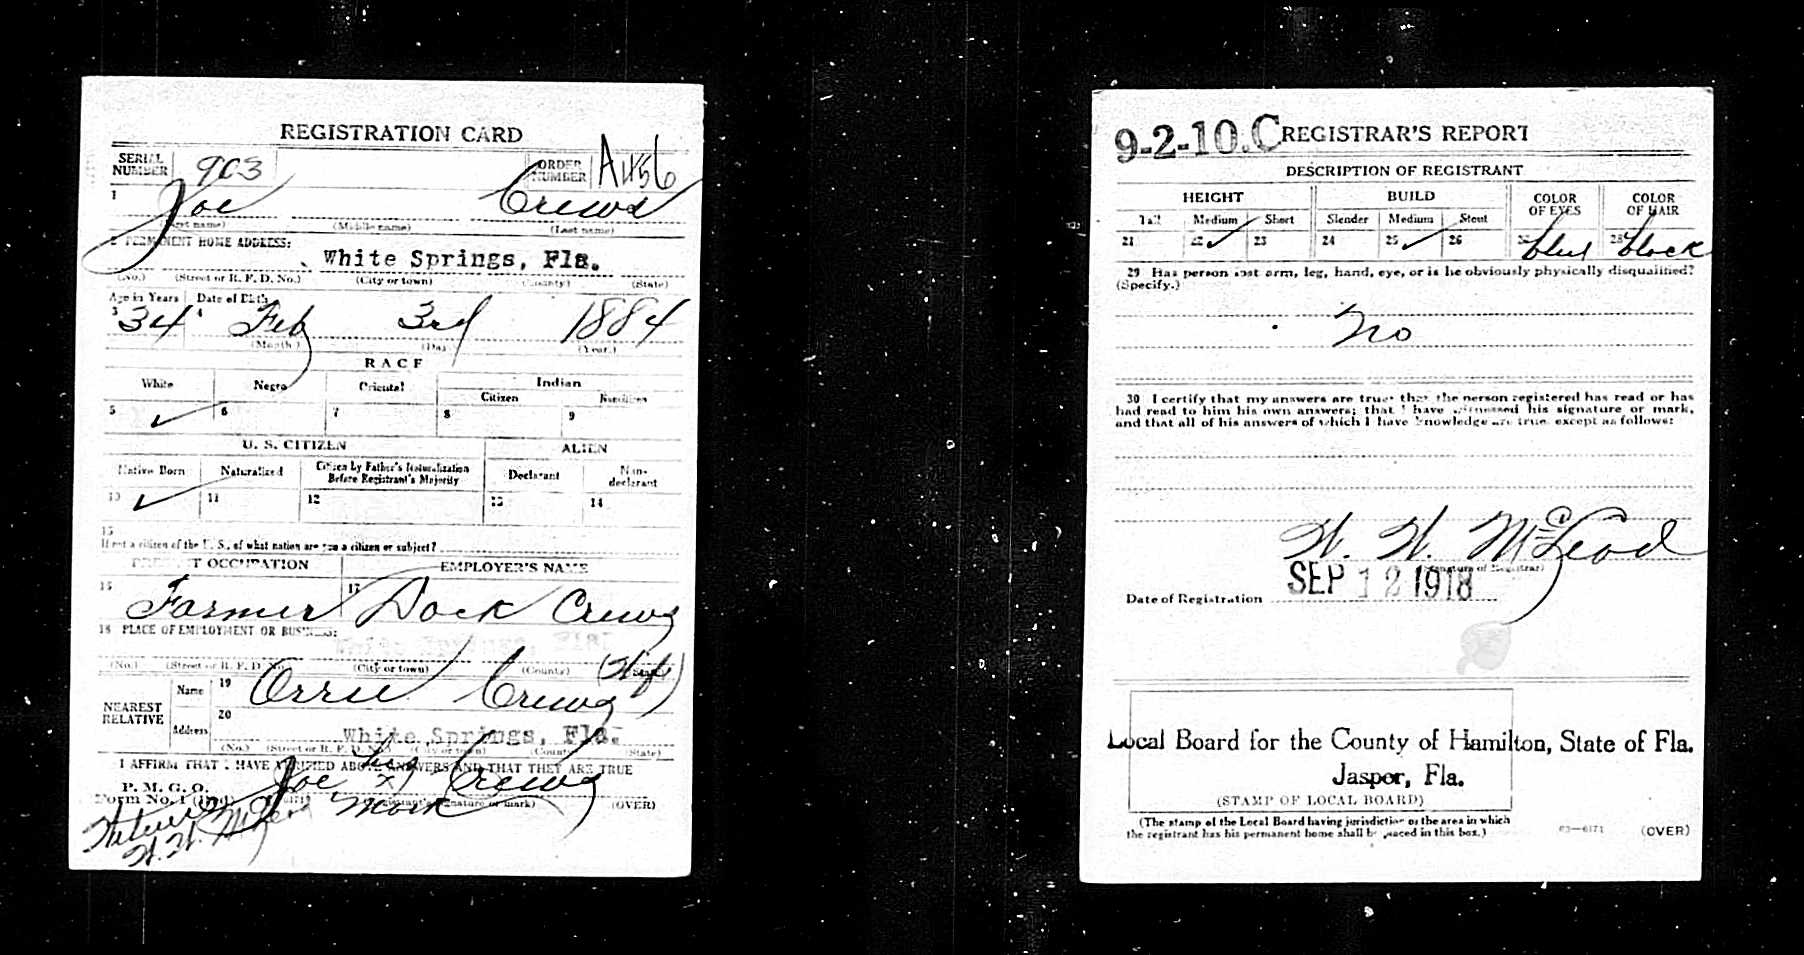 REGISTRATION CARD
SERIAL NUMBER 903 ORDER NUMBER A1456
1 Joe Crews
(First name) (Middle name) (Last name)
2 PERMANENT HOME ADDRESS:
White Springs, Fla.
(No.) (Street or R. F. D. No.) (City or town) (County) (State)
Age in Years Date of Birth
3 34 4 Feb 3rd 1884
(Month.) (Day.) (Year.)
RACE
White Negro Oriental Indian
Citizen Noncitizen
5 ✓ 6 7 8 9
U. S. CITIZEN ALIEN
Native Born Naturalized Citizen by Father's Naturalization Before Registrant's Majority Declarant Non-declarant
10 ✓ 11 12 13 14
15
If not a citizen of the U. S., of what nation are you a citizen or subject?
PRESENT OCCUPATION EMPLOYER'S NAME
16 Farmer 17 Dock Crews
18 PLACE OF EMPLOYMENT OR BUSINESS:
White Springs, Fla.
(No.) (Street or R. F. D. No.) (City or town) (County) (State)
NEAREST RELATIVE Name 19 Orrie Crews (Wife)
Address 20 White Springs, Fla.
(No.) (Street or R. F. D. No.) (City or town) (County) (State)
I AFFIRM THAT I HAVE VERIFIED ABOVE ANSWERS AND THAT THEY ARE TRUE
P. M. G. O.
Form No. 1 (Red)
Joe his x mark Crews
(Registrant's signature or mark) (OVER)
Witness
W. W. McLeod
9-2-10.C REGISTRAR'S REPORT
DESCRIPTION OF REGISTRANT
HEIGHT BUILD COLOR OF EYES COLOR OF HAIR
Tall Medium Short Slender Medium Stout
21 22 ✓ 23 24 25 ✓ 26 27 blue 28 black
29 Has person lost arm, leg, hand, eye, or is he obviously physically disqualified?
(Specify.)
No
30 I certify that my answers are true; that the person registered has read or has
had read to him his own answers; that I have witnessed his signature or mark,
and that all of his answers of which I have knowledge are true, except as follows:
W. W. McLeod
(Signature of Registrar)
Date of Registration SEP 12 1918
Local Board for the County of Hamilton, State of Fla.
Jasper, Fla.
(STAMP OF LOCAL BOARD)
(The stamp of the Local Board having jurisdiction of the area in which
the registrant has his permanent home shall be placed in this box.)
03—6171 (OVER)